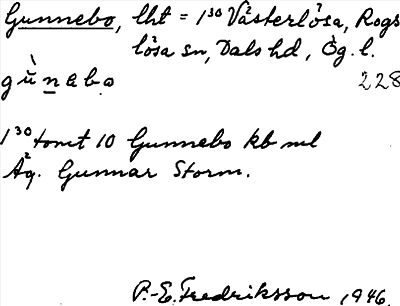 Gunnebo, lht = 1³⁰ Västerlösa, Rogs
lösa sn, Dals hd, Ög. l.
gùnabo 228
1³⁰ tomt 10 Gunnebo kbml
Äg. Gunnar Storm.
P.-E. Fredriksson 1946.